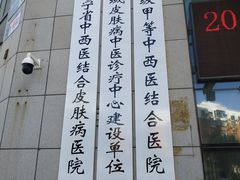 宁省中西医结合皮肤病医院
皮肤病中医诊疗中心建设单位
级甲等中西医结合医院
20